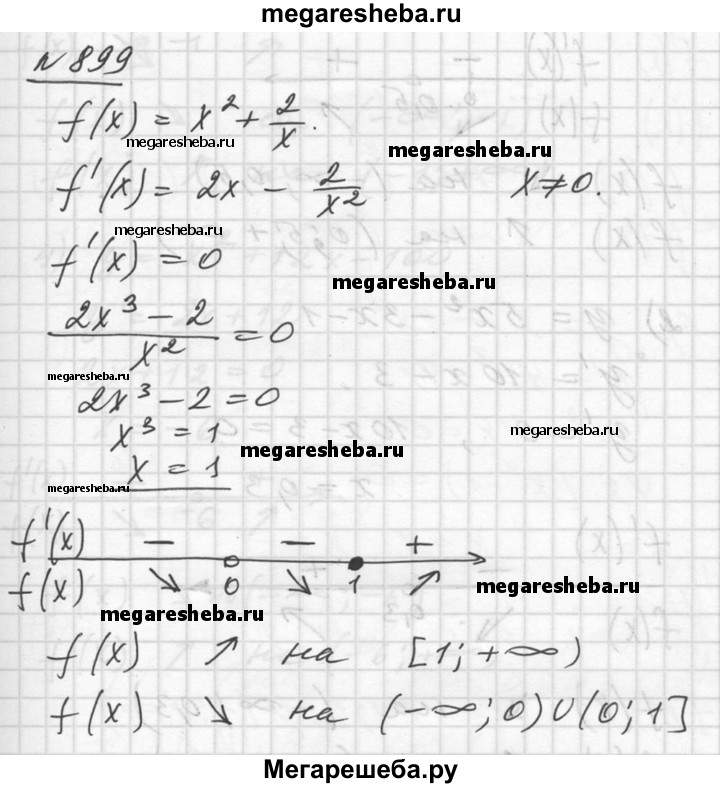 megaresheba.ru
N 899
f(x) = x² + 2/x.
megaresheba.ru
megaresheba.ru
f'(x) = 2x - 2/x² x≠0.
megaresheba.ru
f'(x) = 0
megaresheba.ru
(2x³ - 2)/x² = 0
megaresheba.ru
2x³ - 2 = 0
x³ = 1
megaresheba.ru
megaresheba.ru
x = 1
megaresheba.ru
f'(x) − − +
f(x) ↘ 0 ↘ 1 ↗
megaresheba.ru
megaresheba.ru
f(x) ↗ на [1; +∞)
f(x) ↘ на (-∞; 0) ∪ (0; 1]
Мегарешеба.ру